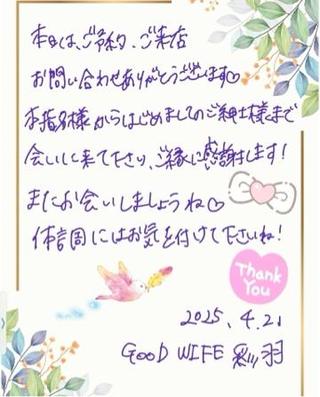 本日は、ご予約、ご来店
お問い合わせありがとうございます♡
本指名様からはじめましてのご紳士様まで
会いに来て下さり、ご縁に感謝します!
またお会いしましょうね♡
体調にはお気を付けて下さいね!
Thank
You
2025. 4. 21
GOOD WIFE 彩羽